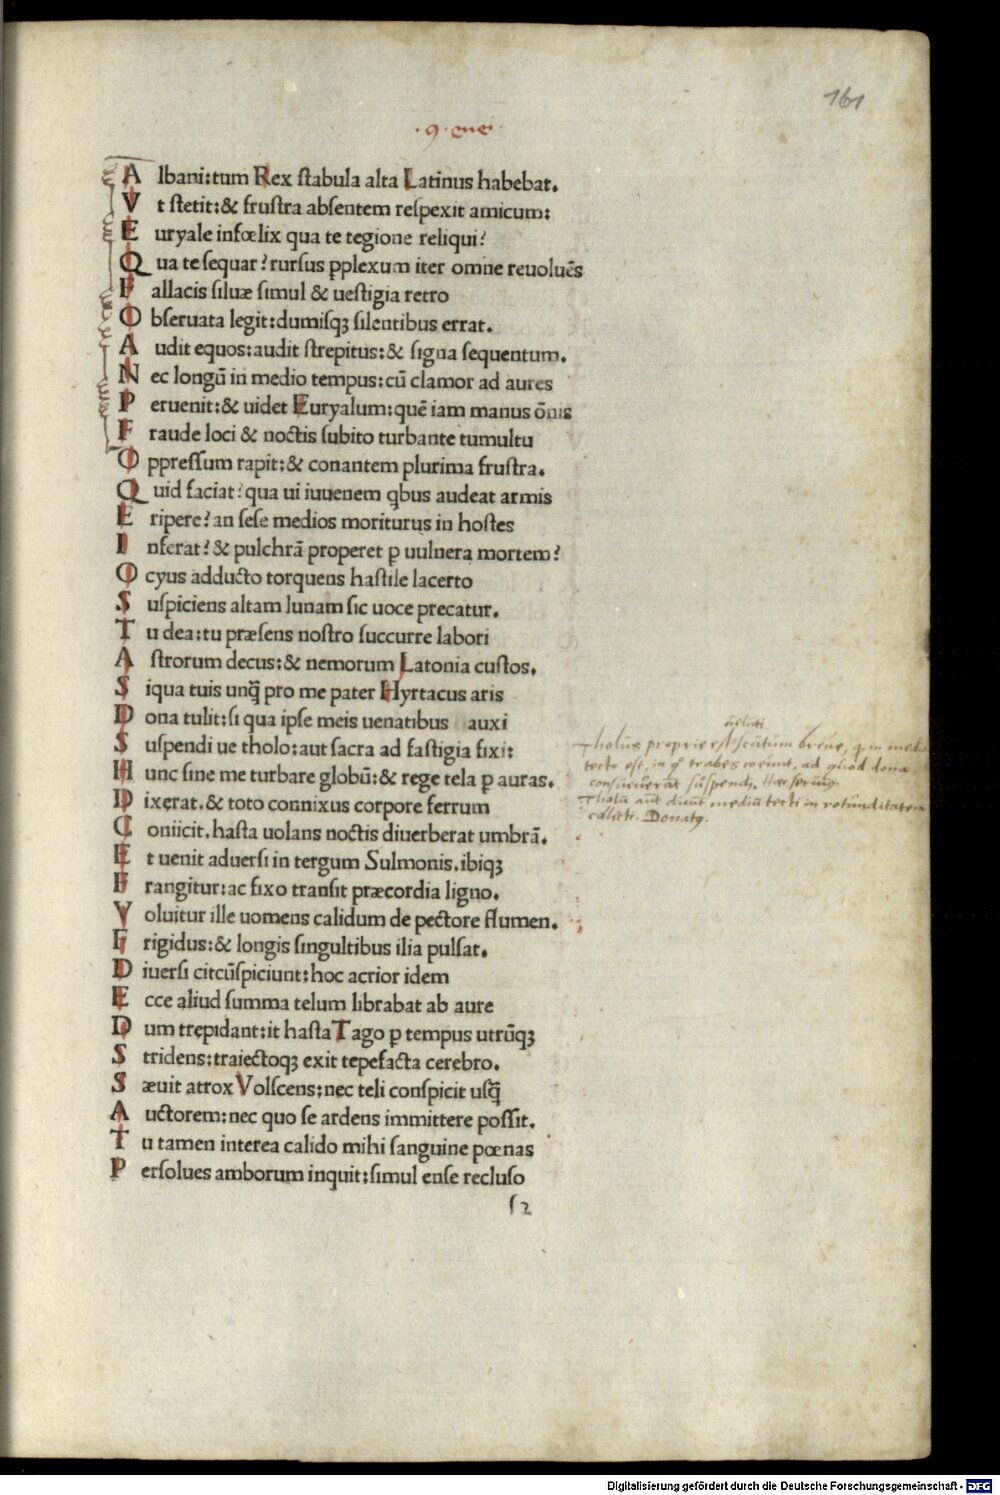 161
·9· ene·
A lbani:tum Rex ſtabula alta Latinus habebat.
V t ſtetit:& fruſtra abſentem reſpexit amicum:
E uryale infœlix qua te tegione reliqui?
Q ua te ſequar? rurſus ꝑplexum iter omne reuoluēs
F allacis ſiluæ ſimul & ueſtigia retro
O bſeruata legit:dumiſqꝫ ſilentibus errat.
A udit equos:audit ſtrepitus:& ſigna ſequentum.
N ec longū in medio tempus:cū clamor ad aures
P eruenit:& uidet Euryalum:quē iam manus ōnis
F raude loci & noctis ſubito turbante tumultu
O ppreſſum rapit:& conantem plurima fruſtra.
Q uid faciat? qua ui iuuenem qbus audeat armis
E ripere? an ſeſe medios moriturus in hoſtes
I nferat? & pulchrā properet ꝑ uulnera mortem?
O cyus adducto torquens haſtile lacerto
S uſpiciens altam lunam ſic uoce precatur.
T u dea:tu præſens noſtro ſuccurre labori
A ſtrorum decus:& nemorum Latonia cuſtos.
S iqua tuis unq̄ pro me pater Hyrtacus aris
D ona tulit:ſi qua ipſe meis uenatibus auxi
S uſpendi ue tholo:aut ſacra ad faſtigia fixi:
H unc ſine me turbare globū:& rege tela ꝑ auras.
D ixerat.& toto connixus corpore ferrum
C oniicit.haſta uolans noctis diuerberat umbrā.
E t uenit aduerſi in tergum Sulmonis.ibiqꝫ
F rangitur:ac fixo tranſit præcordia ligno.
V oluitur ille uomens calidum de pectore flumen.
F rigidus:& longis ſingultibus ilia pulſat.
D iuerſi citcūſpiciunt:hoc acrior idem
E cce aliud ſumma telum librabat ab aure
D um trepidant:it haſta Tago ꝑ tempus utrūqꝫ
S tridens:traiectoqꝫ exit tepefacta cerebro.
S æuit atrox Volſcens:nec teli conſpicit uſq̄
A uctorem:nec quo ſe ardens immittere poſſit.
T u tamen interea calido mihi ſanguine pœnas
P erſolues amborum inquit:ſimul enſe recluſo
ſ2
ueluti
Tholus proprie est scutum breue, q in medio
tecto est, in q° trabes coeunt, ad quod dona
consueuerāt suspendi. Haec seruig.
Tholū aūt dicūt mediū tecti in rotunditatem
collecti. Donatꝰ.
Digitalisierung gefördert durch die Deutsche Forschungsgemeinschaft - DFG